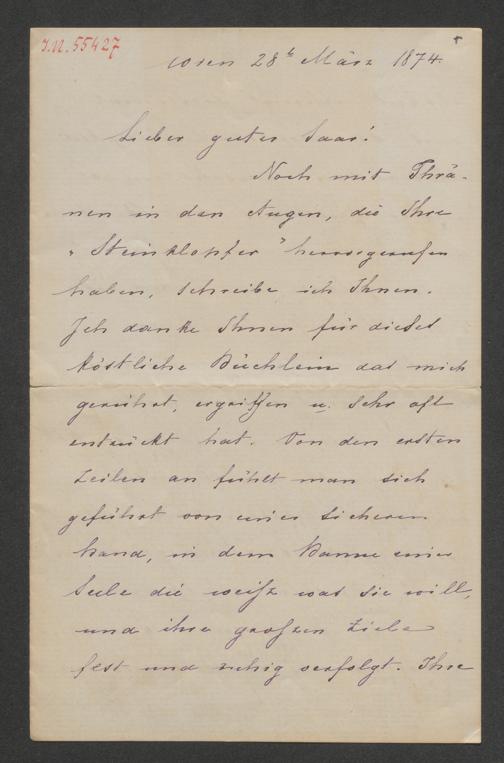 J.N. 55427
Wien 28t März 1874.
Lieber guter Saar!
Noch mit Thrä-
nen in den Augen, die Ihre
„Steinklopfer" hervorgerufen
haben, schreibe ich Ihnen.
Ich danke Ihnen für dieses
köstliche Büchlein das mich
gerührt, ergriffen u. sehr oft
entzückt hat. Von den ersten
Zeilen an fühlt man sich
geführt von einer sicheren
Hand, in dem Banne einer
Seele die weiß was sie will,
und ihre großen Ziele
fest und ruhig verfolgt. Ihre